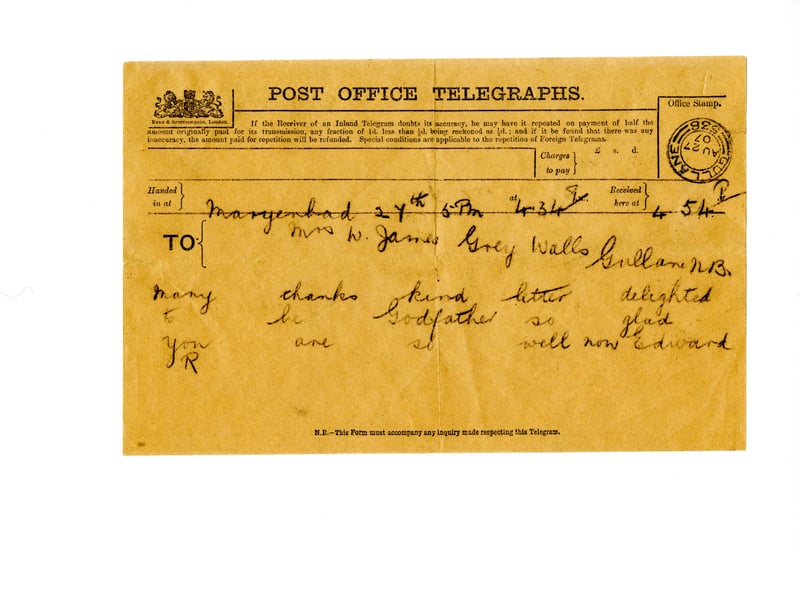 POST OFFICE TELEGRAPHS.
Office Stamp.
If the Receiver of an Inland Telegram doubts its accuracy, he may have it repeated on payment of half the
amount originally paid for its transmission, any fraction of 1d. less than ½d. being reckoned as ½d.; and if it be found that there was any
inaccuracy, the amount paid for repetition will be refunded. Special conditions are applicable to the repetition of Foreign Telegrams.
GULLANE
AU 27
07
Charges to pay
£ s. d.
Handed in at
Maryenbad 27th 5 Pm at 4.34 P
Received here at
4 54 P
TO
Mrs W. James Grey Walls Gullane N.B.
Many thanks kind letter delighted
to be Godfather so glad
you are so well now Edward
R
N.B.—This Form must accompany any inquiry made respecting this Telegram.